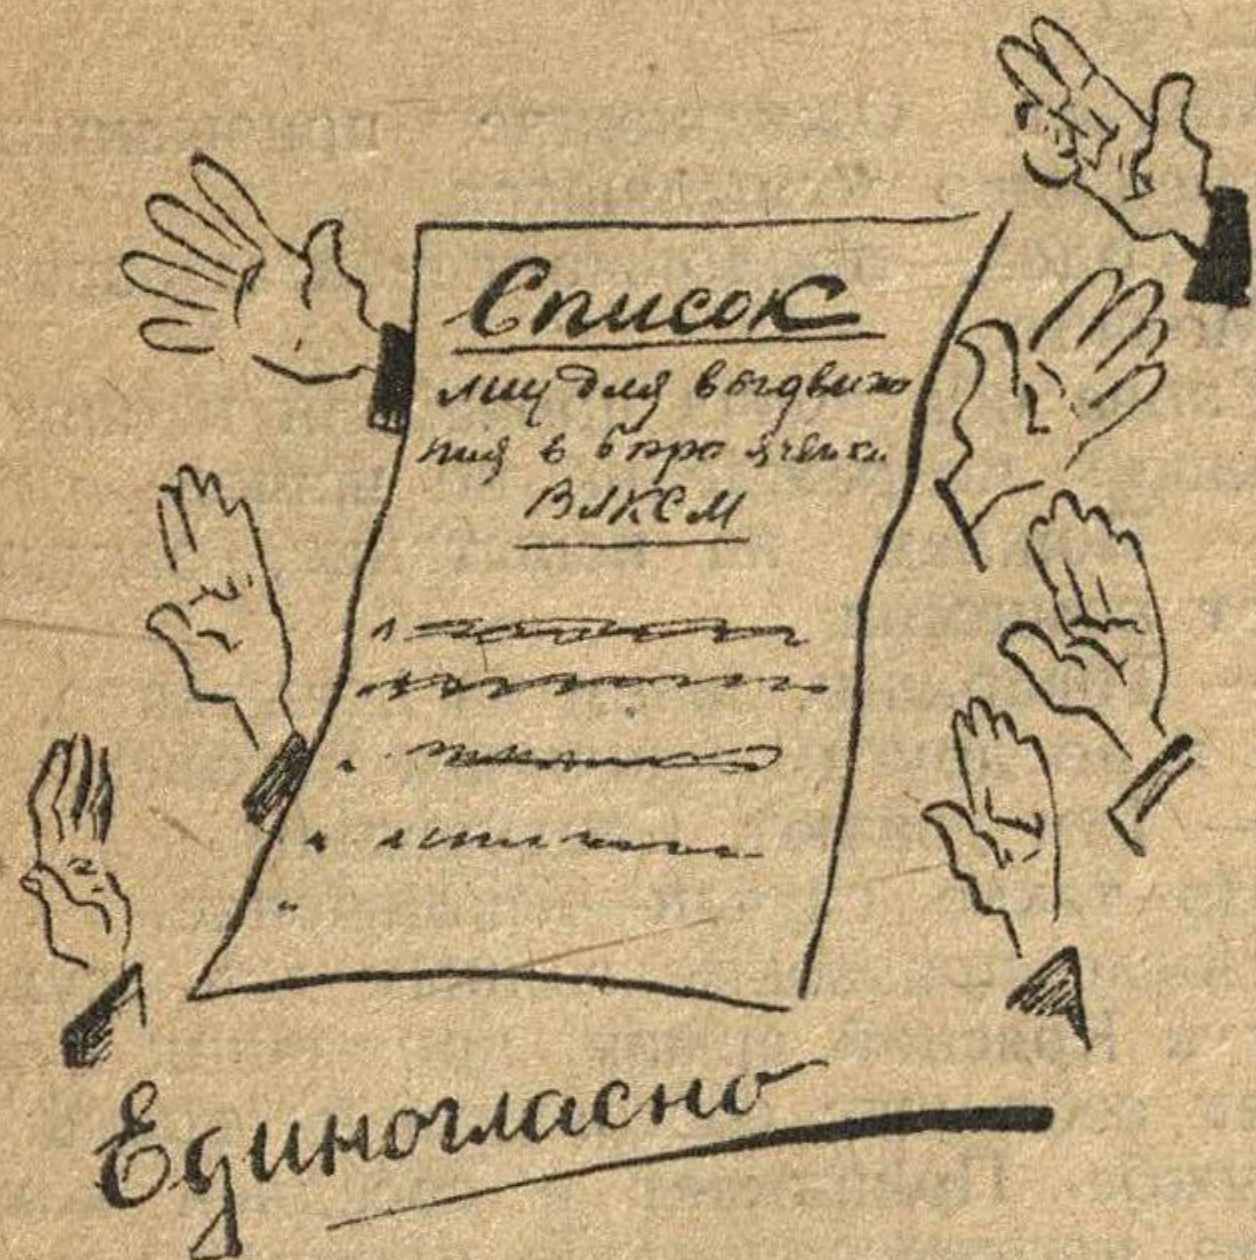 Список
лиц для выдвиже
ния в бюро ячейки
ВЛКСМ
Единогласно